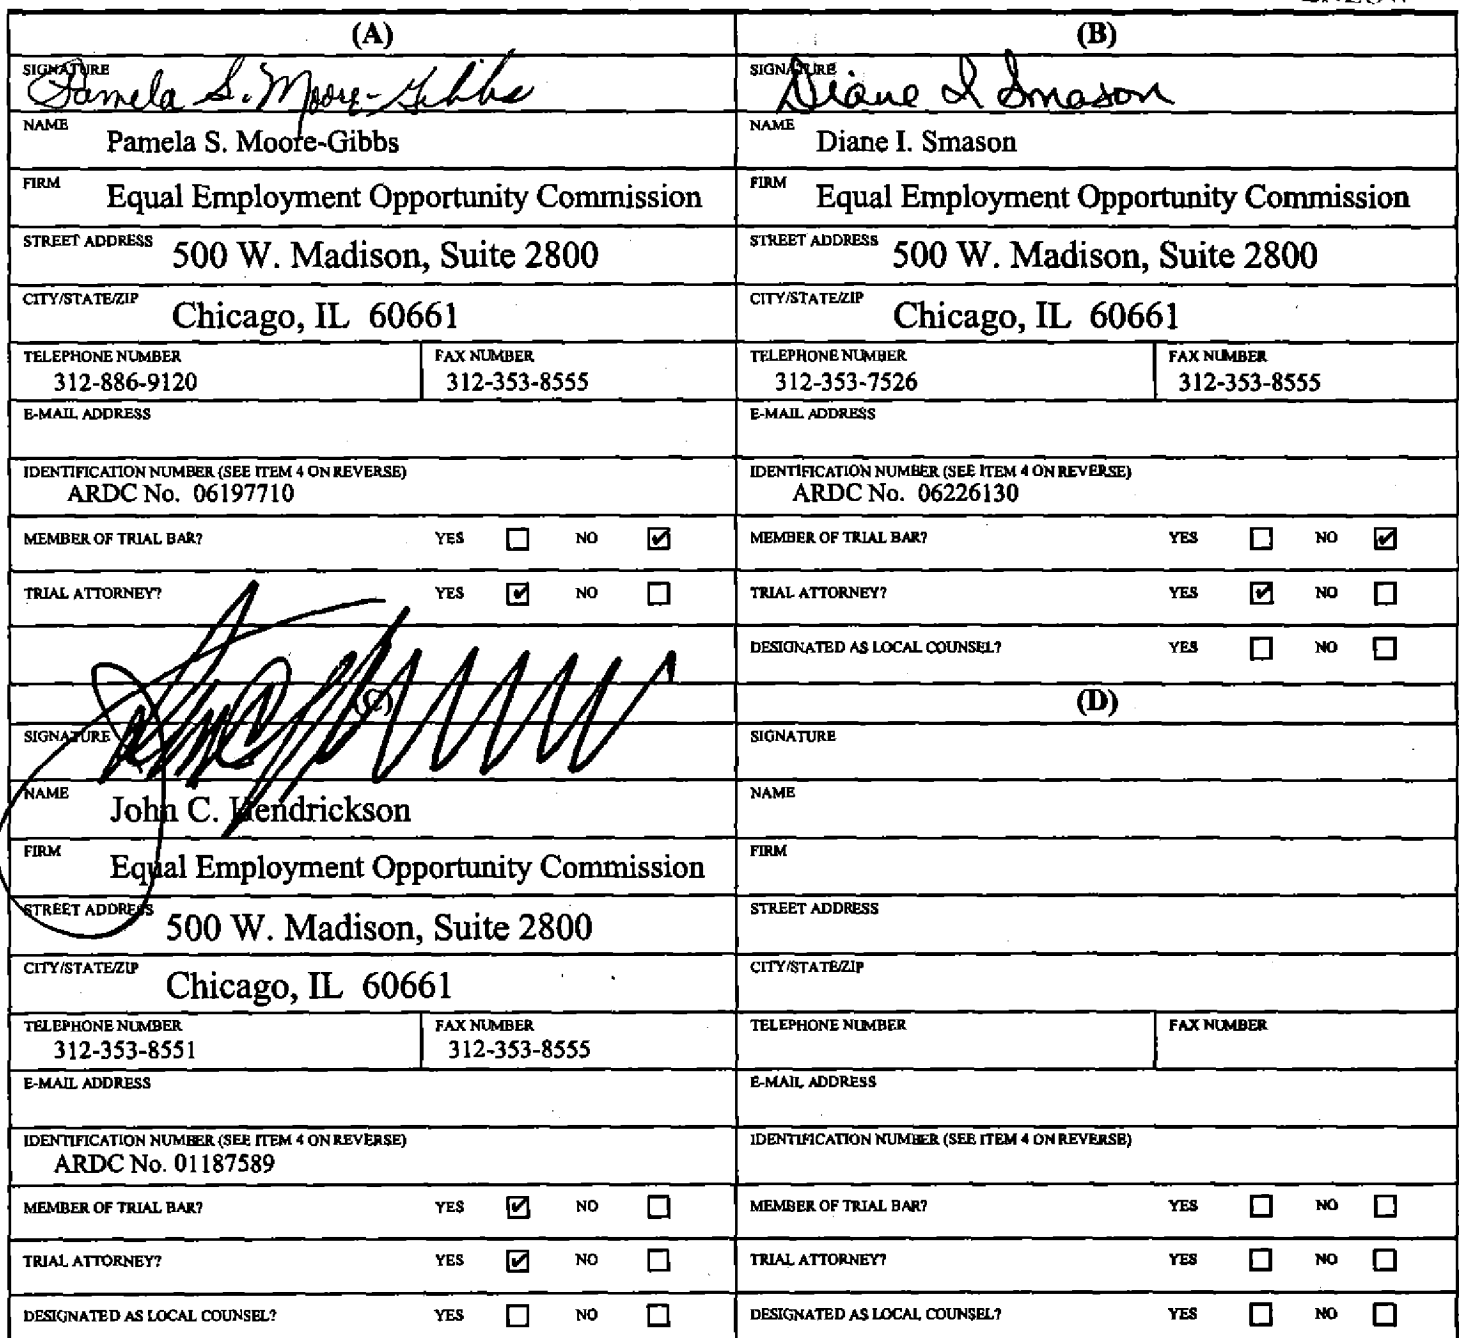 (A)
SIGNATURE Pamela S. Moore-Gibbs
NAME Pamela S. Moore-Gibbs
FIRM Equal Employment Opportunity Commission
STREET ADDRESS 500 W. Madison, Suite 2800
CITY/STATE/ZIP Chicago, IL 60661
TELEPHONE NUMBER 312-886-9120
FAX NUMBER 312-353-8555
E-MAIL ADDRESS
IDENTIFICATION NUMBER (SEE ITEM 4 ON REVERSE)
ARDC No. 06197710
MEMBER OF TRIAL BAR? YES ☐ NO ☑
TRIAL ATTORNEY? YES ☑ NO ☐
(B)
SIGNATURE Diane I Smason
NAME Diane I. Smason
FIRM Equal Employment Opportunity Commission
STREET ADDRESS 500 W. Madison, Suite 2800
CITY/STATE/ZIP Chicago, IL 60661
TELEPHONE NUMBER 312-353-7526
FAX NUMBER 312-353-8555
E-MAIL ADDRESS
IDENTIFICATION NUMBER (SEE ITEM 4 ON REVERSE)
ARDC No. 06226130
MEMBER OF TRIAL BAR? YES ☐ NO ☑
TRIAL ATTORNEY? YES ☑ NO ☐
DESIGNATED AS LOCAL COUNSEL? YES ☐ NO ☐
(C)
SIGNATURE
NAME John C. Hendrickson
FIRM Equal Employment Opportunity Commission
STREET ADDRESS 500 W. Madison, Suite 2800
CITY/STATE/ZIP Chicago, IL 60661
TELEPHONE NUMBER 312-353-8551
FAX NUMBER 312-353-8555
E-MAIL ADDRESS
IDENTIFICATION NUMBER (SEE ITEM 4 ON REVERSE)
ARDC No. 01187589
MEMBER OF TRIAL BAR? YES ☑ NO ☐
TRIAL ATTORNEY? YES ☑ NO ☐
DESIGNATED AS LOCAL COUNSEL? YES ☐ NO ☐
(D)
SIGNATURE
NAME
FIRM
STREET ADDRESS
CITY/STATE/ZIP
TELEPHONE NUMBER
FAX NUMBER
E-MAIL ADDRESS
IDENTIFICATION NUMBER (SEE ITEM 4 ON REVERSE)
MEMBER OF TRIAL BAR? YES ☐ NO ☐
TRIAL ATTORNEY? YES ☐ NO ☐
DESIGNATED AS LOCAL COUNSEL? YES ☐ NO ☐